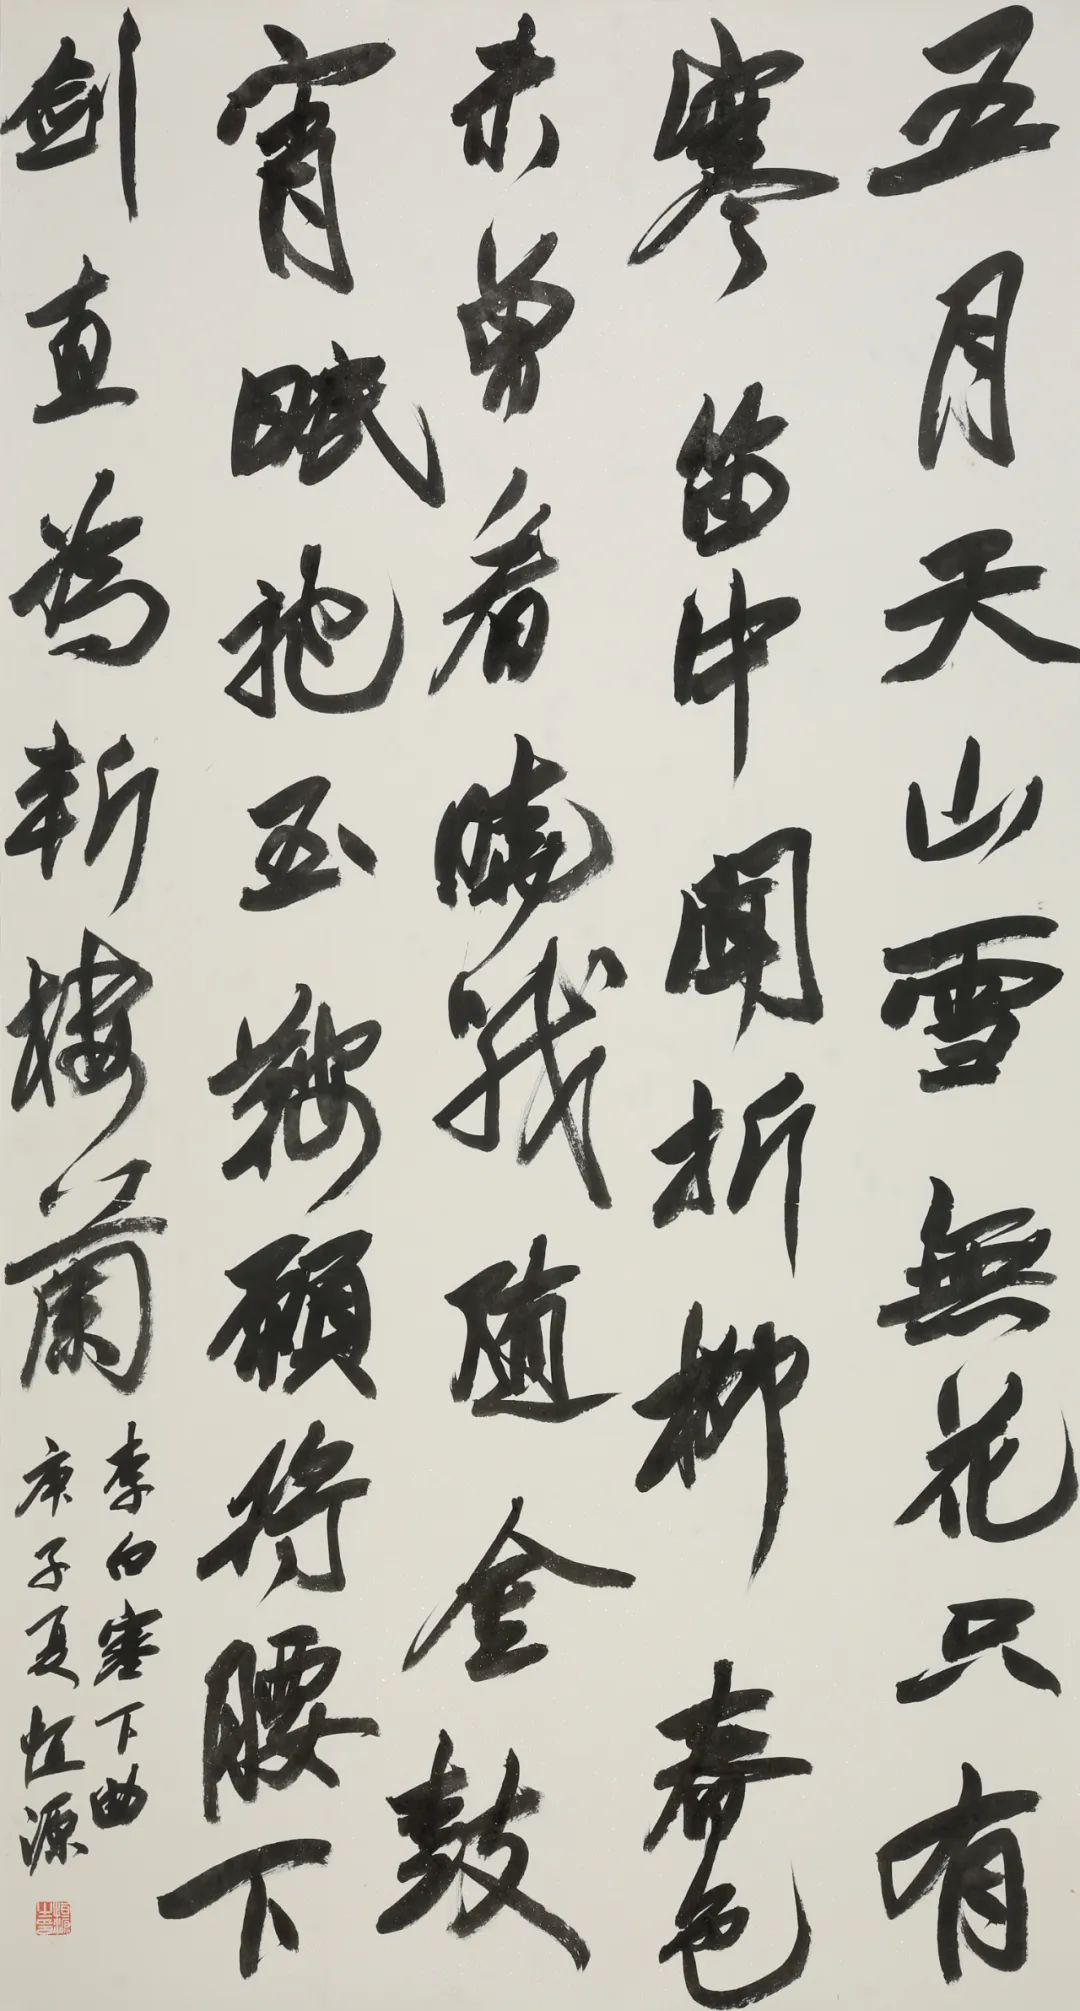 五月天山雪無花只有
寒笛中聞折柳春色
未曾看曉戰隨金鼓
宵眠抱玉鞍願將腰下
劍直為斬樓蘭
李白塞下曲
庚子夏恒源